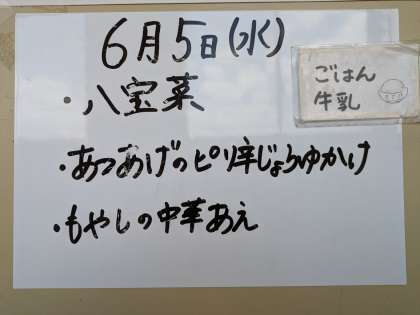 6月5日(水)
ごはん
牛乳
・八宝菜
・あつあげのピリ辛じょうゆかけ
・もやしの中華あえ